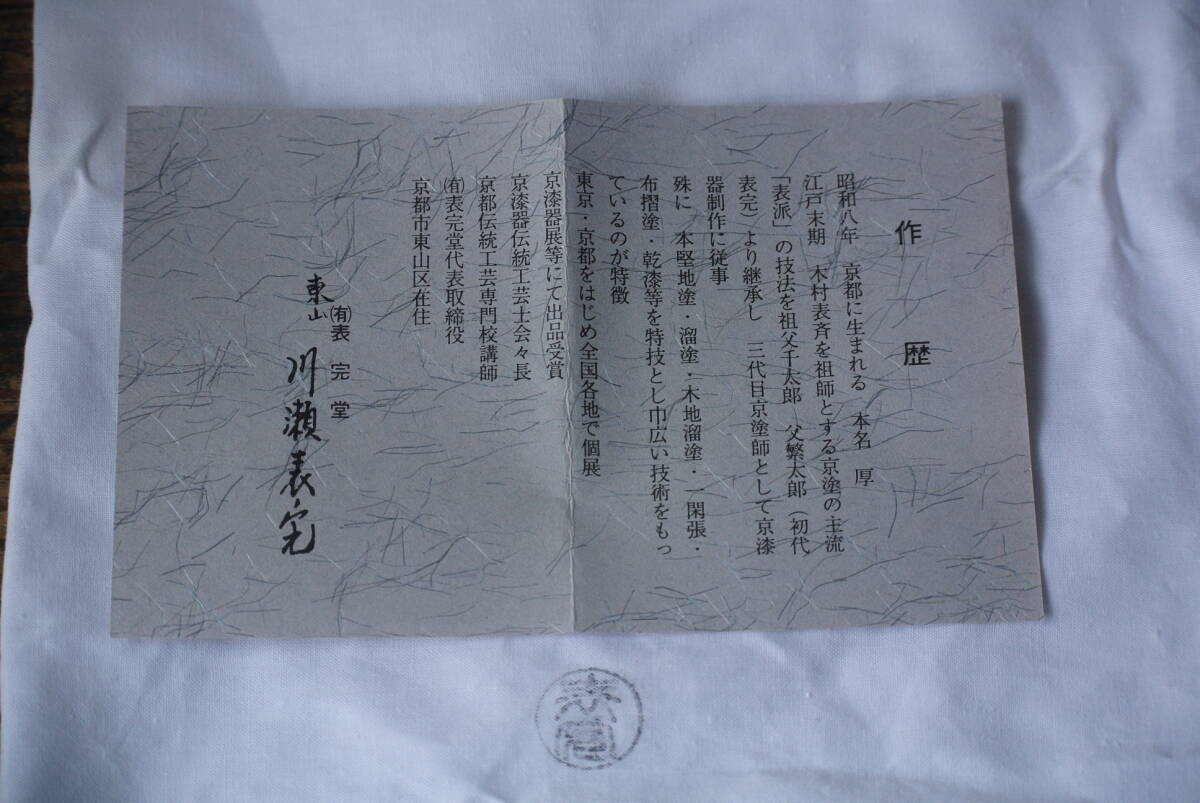 作歴
昭和八年 京都に生まれる 本名 厚
江戸末期 木村表斉を祖師とする京塗の主流
「表派」の技法を祖父千太郎 父繁太郎（初代
表完）より継承し 三代目京塗師として京漆
器制作に従事
殊に 本堅地塗・溜塗・木地溜塗・一閑張・
布摺塗・乾漆等を特技とし巾広い技術をもっ
ているのが特徴
東京・京都をはじめ全国各地で個展
京漆器展等にて出品受賞
京漆器伝統工芸士会々長
京都伝統工芸専門校講師
㈲表完堂代表取締役
京都市東山区在住
㈲表完堂
東山 川瀬表完
表完